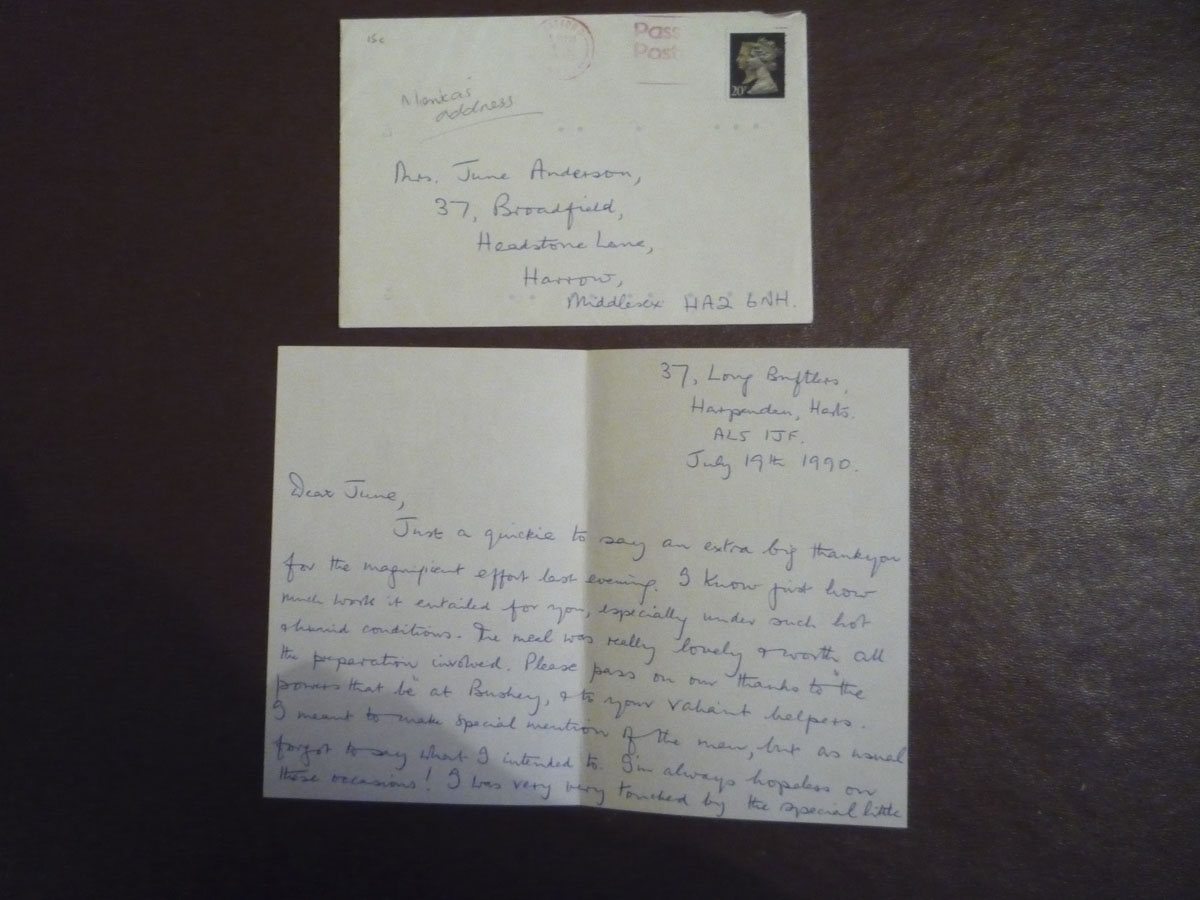 15c
Pass
Post
20P
address
Mrs. June Anderson,
37, Broadfield,
Headstone Lane,
Harrow,
Middlesex HA2 6NH.
37, Long Buftlers,
Harpenden, Herts.
AL5 1JF.
July 19th 1990.
Dear June,
Just a quickie to say an extra big thankyou
for the magnificent effort last evening. I know just how
much work it entailed for you, especially under such hot
& humid conditions. The meal was really lovely & worth all
the preparation involved. Please pass on our thanks to "the
powers that be" at Bushey, & to your valiant helpers.
I meant to make special mention of the men, but as usual
forgot to say what I intended to. I'm always hopeless on
these occasions! I was very very touched by the special little